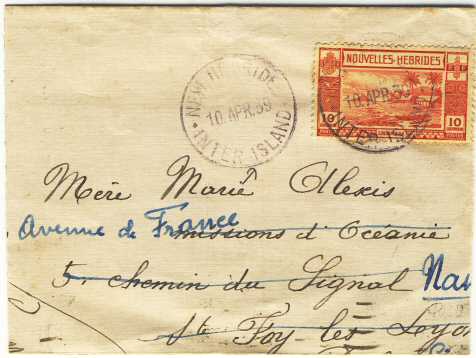 NOUVELLES-HEBRIDES
10 10
NEW HEBRIDES
10. APR. 39
INTER ISLAND
10. APR. 39
INTER IS
Mère Marie Alexis
Avenue de France
missions d'Océanie
5. chemin du Signal
Ste Foy-les-Lyo